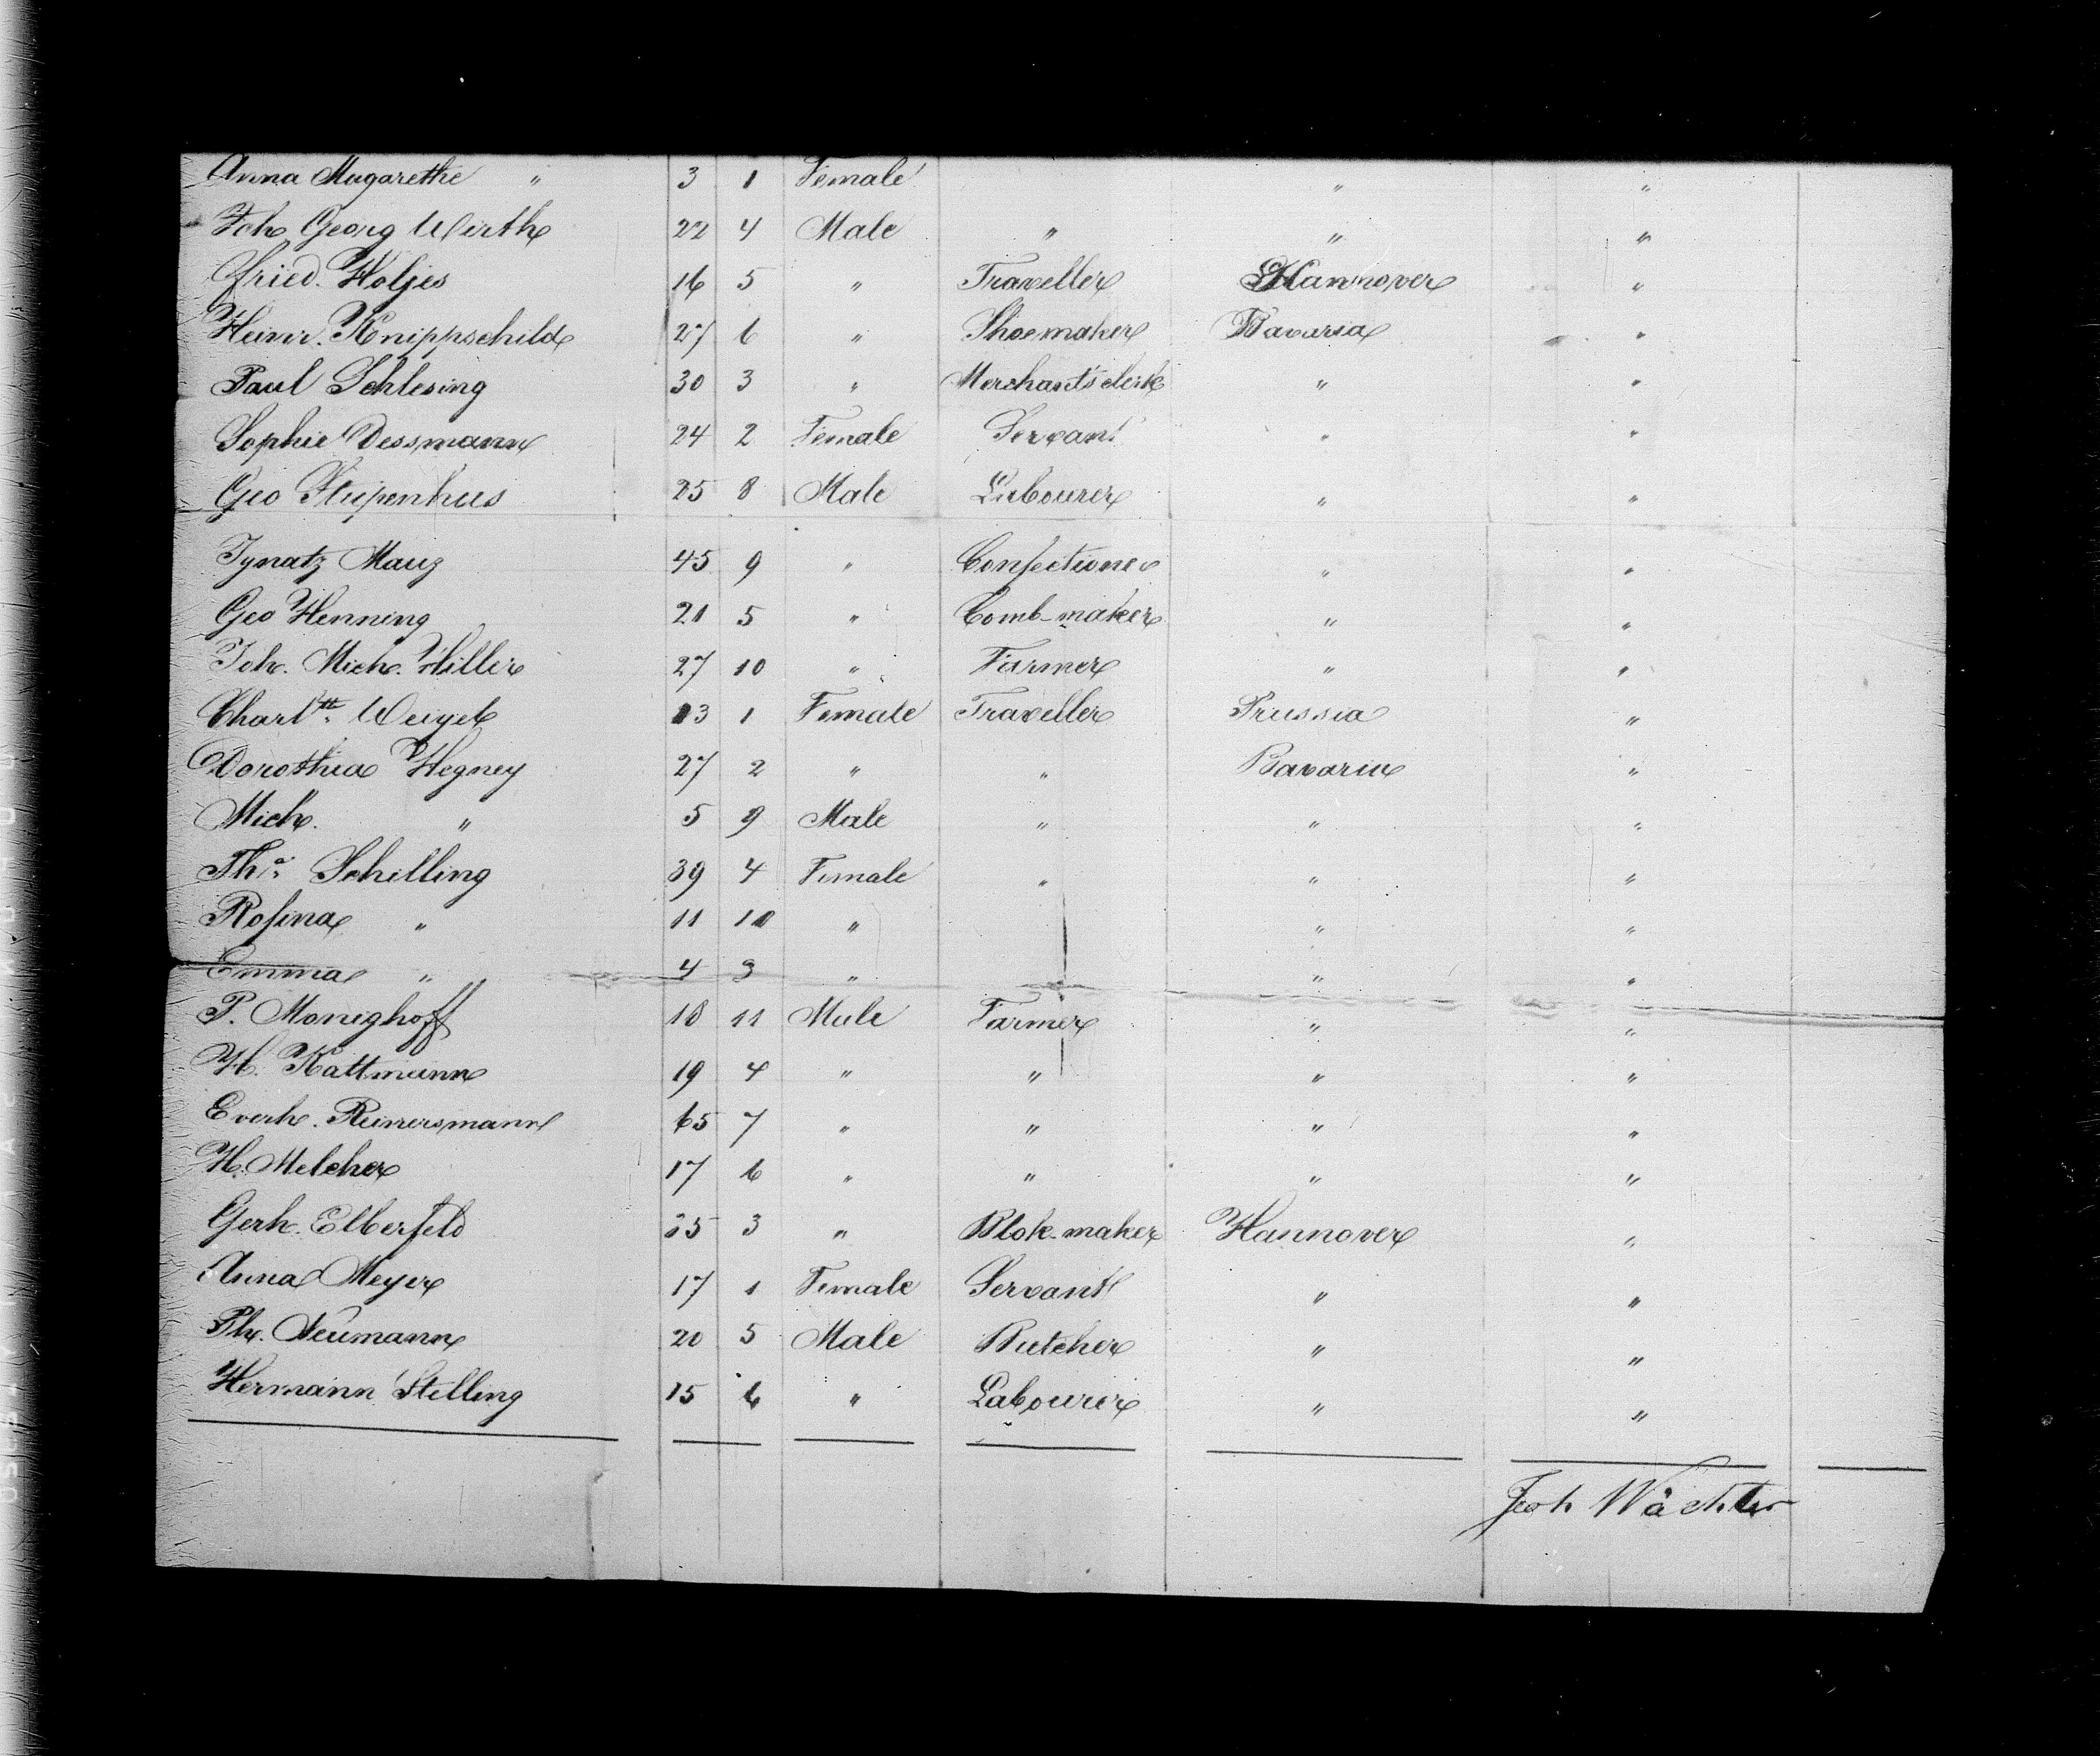 Anna Magarethe " 3 1 Female " "
Joh Georg Wirth 22 4 Male " " "
Fried. Holjes 16 5 " Traveller Hannover "
Heinr. Knippschild 27 6 " Shoemaker Bavaria "
Paul Schlesing 30 3 " Merchant's clerk " "
Sophie Dessmann 24 2 Female Servant " "
Geo 25 8 Male Labourer " "
Ignatz Mauz 45 9 " Confectioner " "
Geo Henning 21 5 " Comb-maker " "
Joh. Mich. Hiller 27 10 " Farmer " "
Charltte. Weigel 13 1 Female Traveller Prussia "
Dorothea Hegney 27 2 " " Bavaria "
Mich. " 5 9 Male " " "
Schilling 39 4 Female " " "
Rosina " 11 10 " " "
Emma " 4 3 " " "
P. Monighoff 18 11 Male Farmer " "
H. Kattmann 19 4 " " " "
Everh. Reinersmann 65 7 " " " "
H. Melcher 17 6 " " " "
Gerh. Elberfeld 35 3 " Blok-maker Hannover "
Anna Meyer 17 1 Female Servant " "
Ph. Neumann 20 5 Male Butcher " "
Hermann Stelling 15 6 " Labourer " "
Wächter